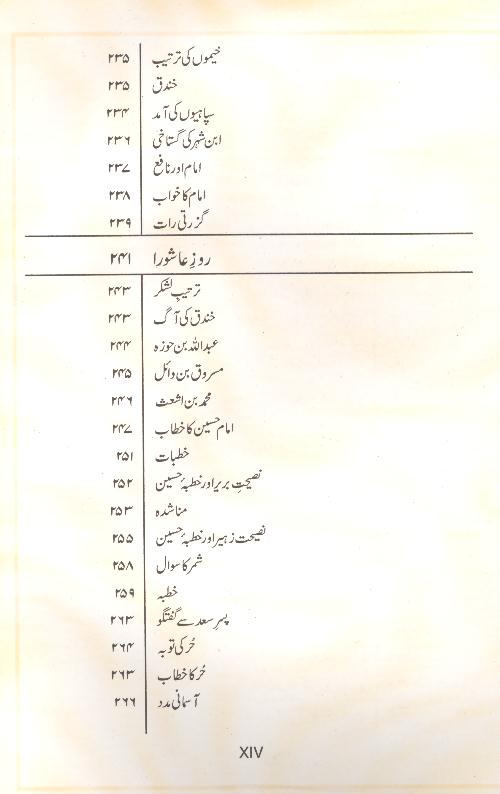 خیموں کی ترتیب ۲۳۵
خندق ۲۳۵
سپاہیوں کی آمد ۲۳۴
ابن شہر کی گستاخی ۲۳۶
امام اور نافع ۲۳۷
امام کا خواب ۲۳۸
گزرتی رات ۲۳۹
روزِ عاشورا ۲۴۱
ترتیبِ لشکر ۲۴۳
خندق کی آگ ۲۴۳
عبداللہ بن حوزہ ۲۴۴
مسروق بن وائل ۲۴۵
محمد بن اشعث ۲۴۶
امام حسین کا خطاب ۲۴۷
خطبات ۲۵۱
نصیحتِ بریر اور خطبۂ حسین ۲۵۲
مناشدہ ۲۵۳
نصیحت زہیر اور خطبۂ حسین ۲۵۵
شمر کا سوال ۲۵۸
خطبہ ۲۵۹
پسرِ سعد سے گفتگو ۲۶۳
حُر کی توبہ ۲۶۴
حُر کا خطاب ۲۶۳
آسمانی مدد ۲۶۶
XIV